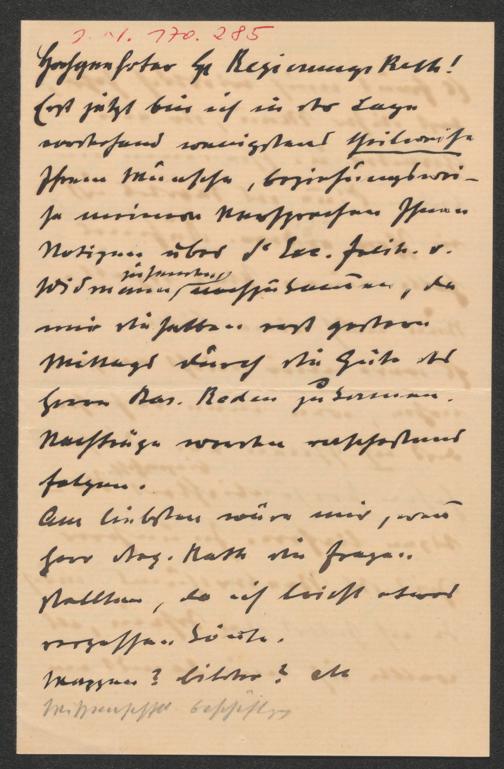 I. N. 170.285
Hochgeehrter Hr RegierungsRath!
Erst jetzt bin ich in der Lage
vorstehend wenigstens theilweise
Ihrem Wunsche, beziehungswei-
se meinem Versprechen Ihnen
Notizen über Sr Exc. Frlh. v.
Widmann zusenden nachzukommen, da
mir dieselben erst gestern
Mittags durch die Güte des
Herrn Bar. Roden zukamen.
Nachträge werden entsprechend
folgen.
Am liebsten wäre mir, wenn
Herr Reg. Rath die Fragen
stellten, da ich leicht etwas
vergessen könnte.
Wappen? Bilder? etc